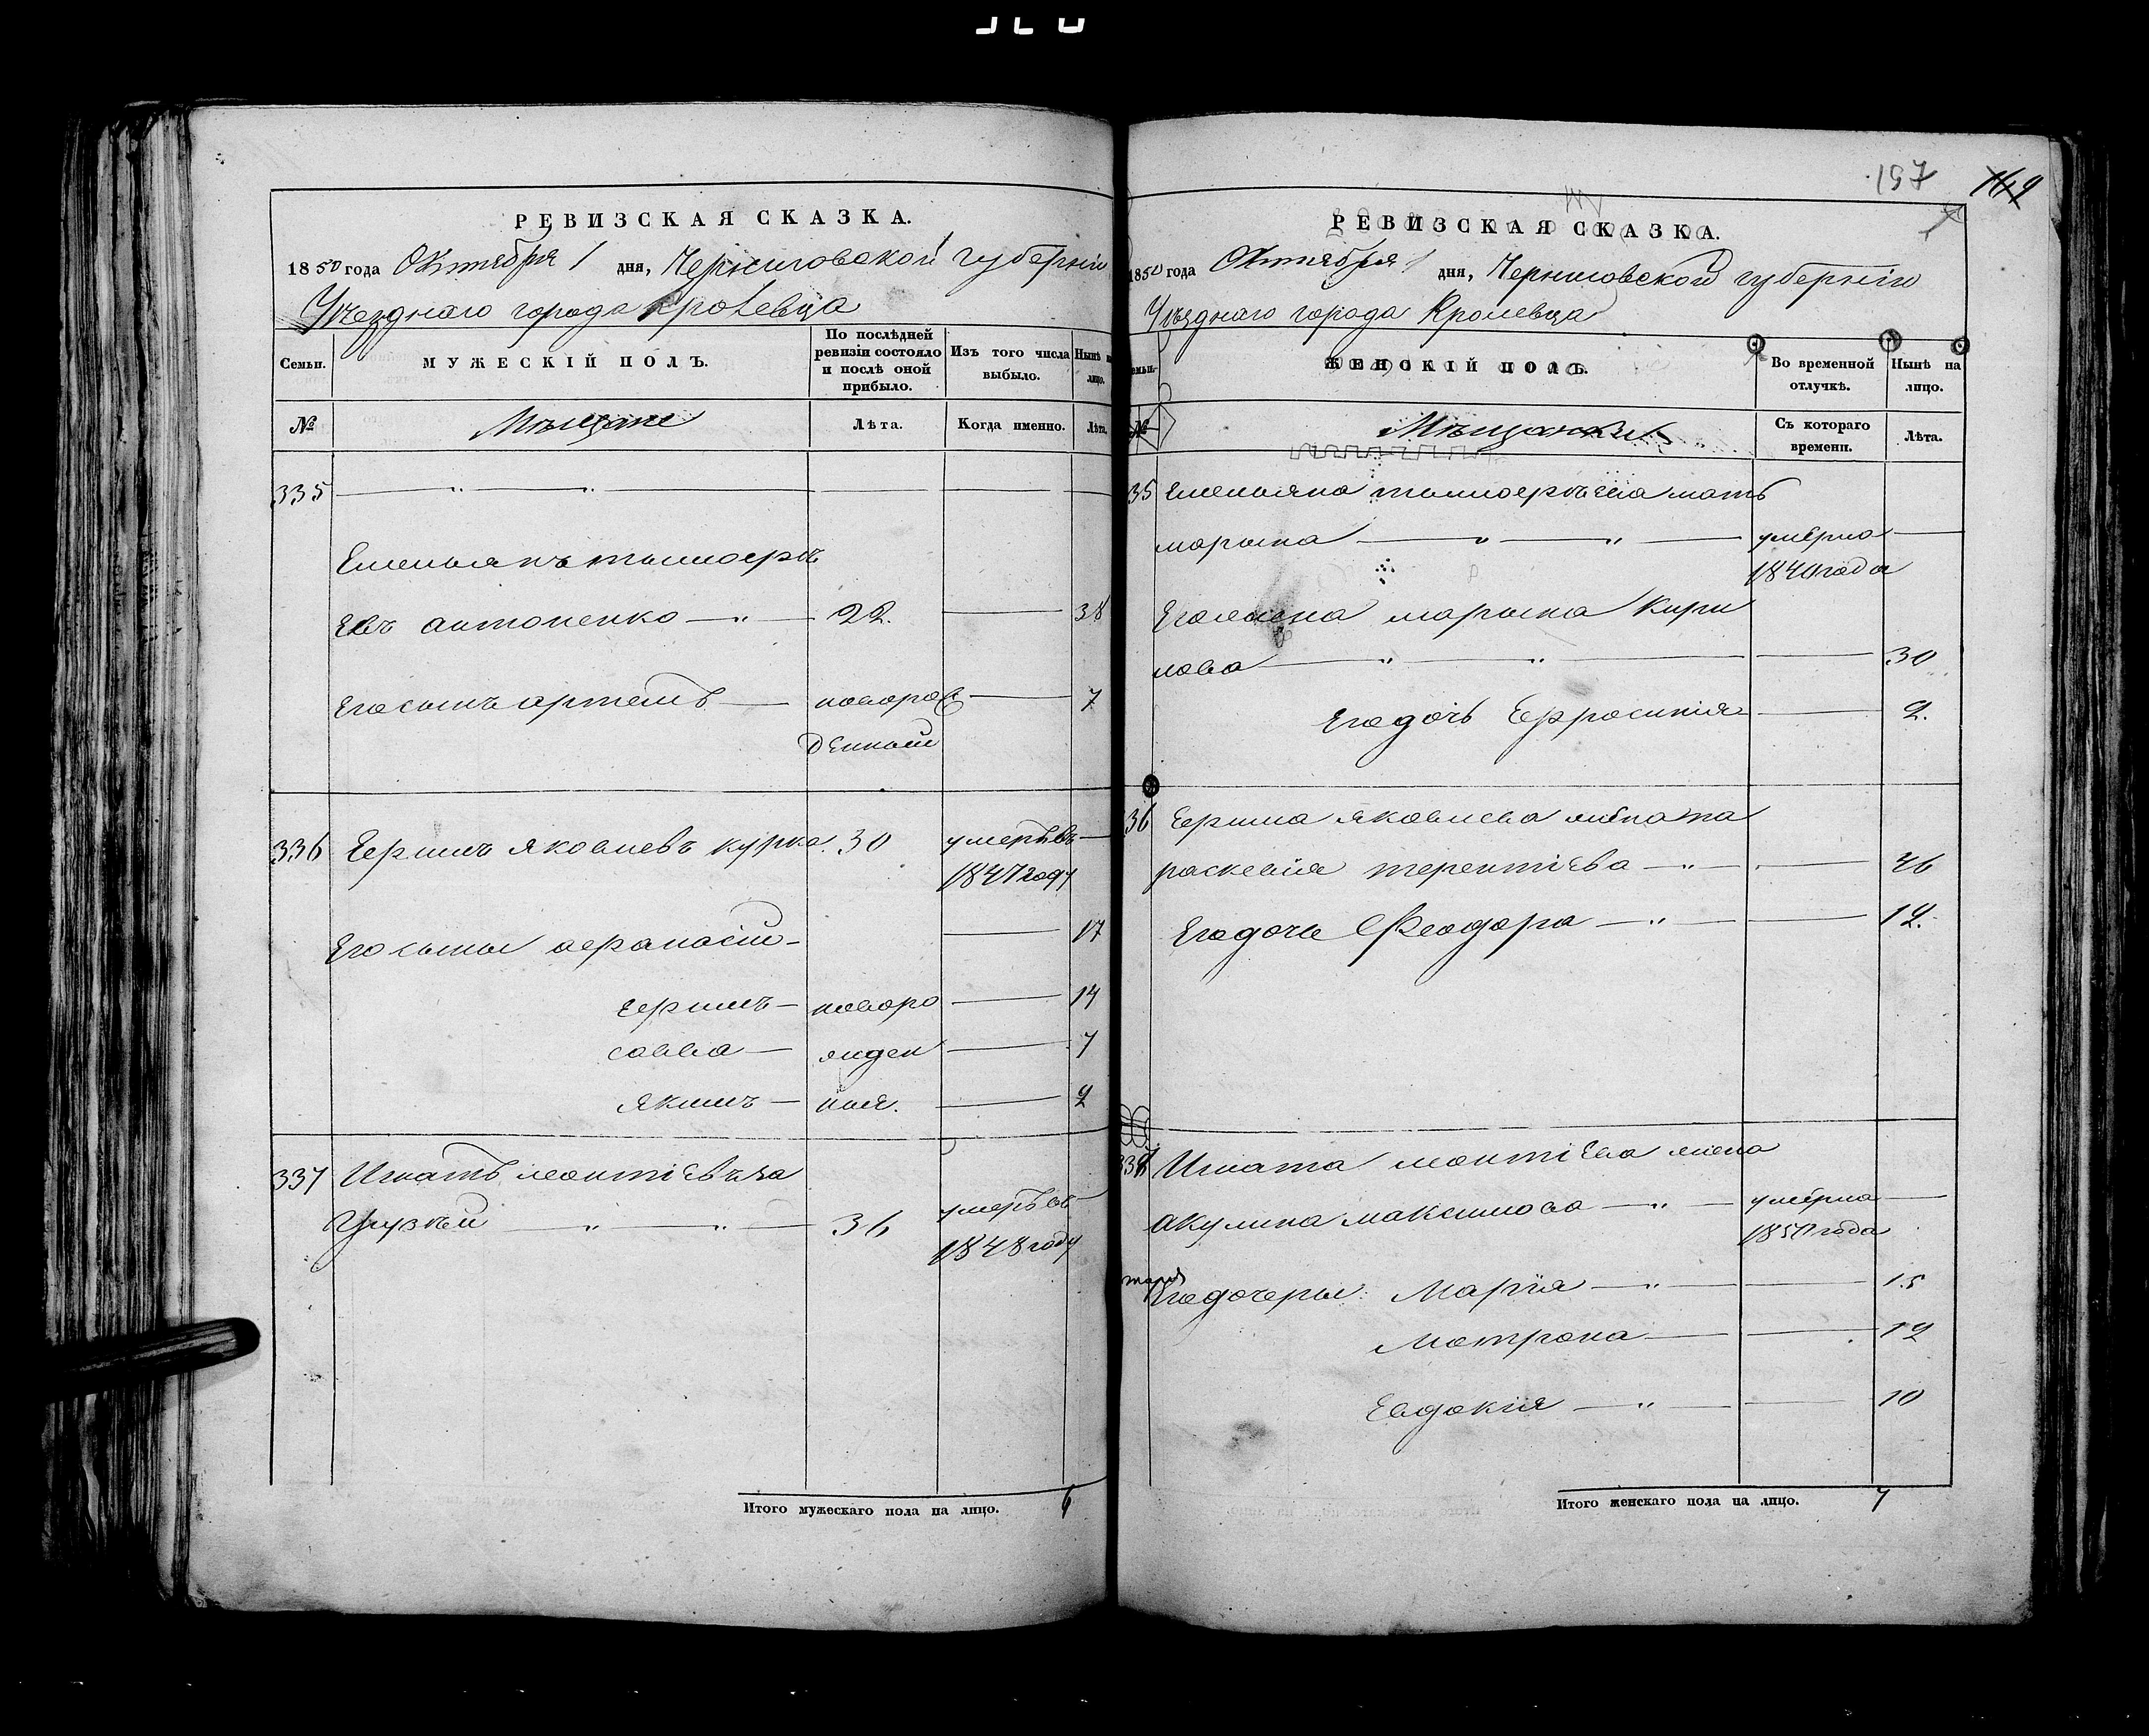 РЕВИЗСКАЯ СКАЗКА.
1850 года Октября 1 дня, Черниговской губерніи
Уѣзднаго города Кролевца
Семьи.
МУЖЕСКІЙ ПОЛЪ.
По послѣдней ревизіи состояло и послѣ оной прибыло.
Изъ того числа выбыло.
Нынѣ на лицо.
№
Мѣщане
Лѣта.
Когда именно.
Лѣта.
335
Емельянъ тимоѳѣ
евъ антоненко 22. 38
Его сынъ артемъ новорож 7
денный
336 Ефимъ яковлевъ курка. 30 умеръ въ
1847 году
Его сыны афанасій 17
Ефимъ новоро 14
савва жден 7
якимъ ныя. 2
337 Игнатъ леонтіевъ за
грузкій 36 умеръ въ
1848 году
Итого мужескаго пола на лицо. 6
157 149
РЕВИЗСКАЯ СКАЗКА.
1850 года Октября 1 дня, Черниговской губерніи
Уѣзднаго города Кролевца
ЖЕНСКІЙ ПОЛЪ.
Во временной отлучкѣ.
Нынѣ на лицо.
№
Мѣщанки
Съ котораго времени.
Лѣта.
35 Емельяна тимоѳѣева мать
марына умерла
1840 года
Его жена марына Кири
лова 30
Его дочь Ефросинія 2.
36 Ефима яковлева жена па
раскевія терентіева 46
Его дочь Феодора 12.
337 Игната леонтіева жена
акулина максимова умерла
1850 года
Его дочеры: Марія 15
Мотрона 12
Евдокія 10
Итого женскаго пола на лицо. 7